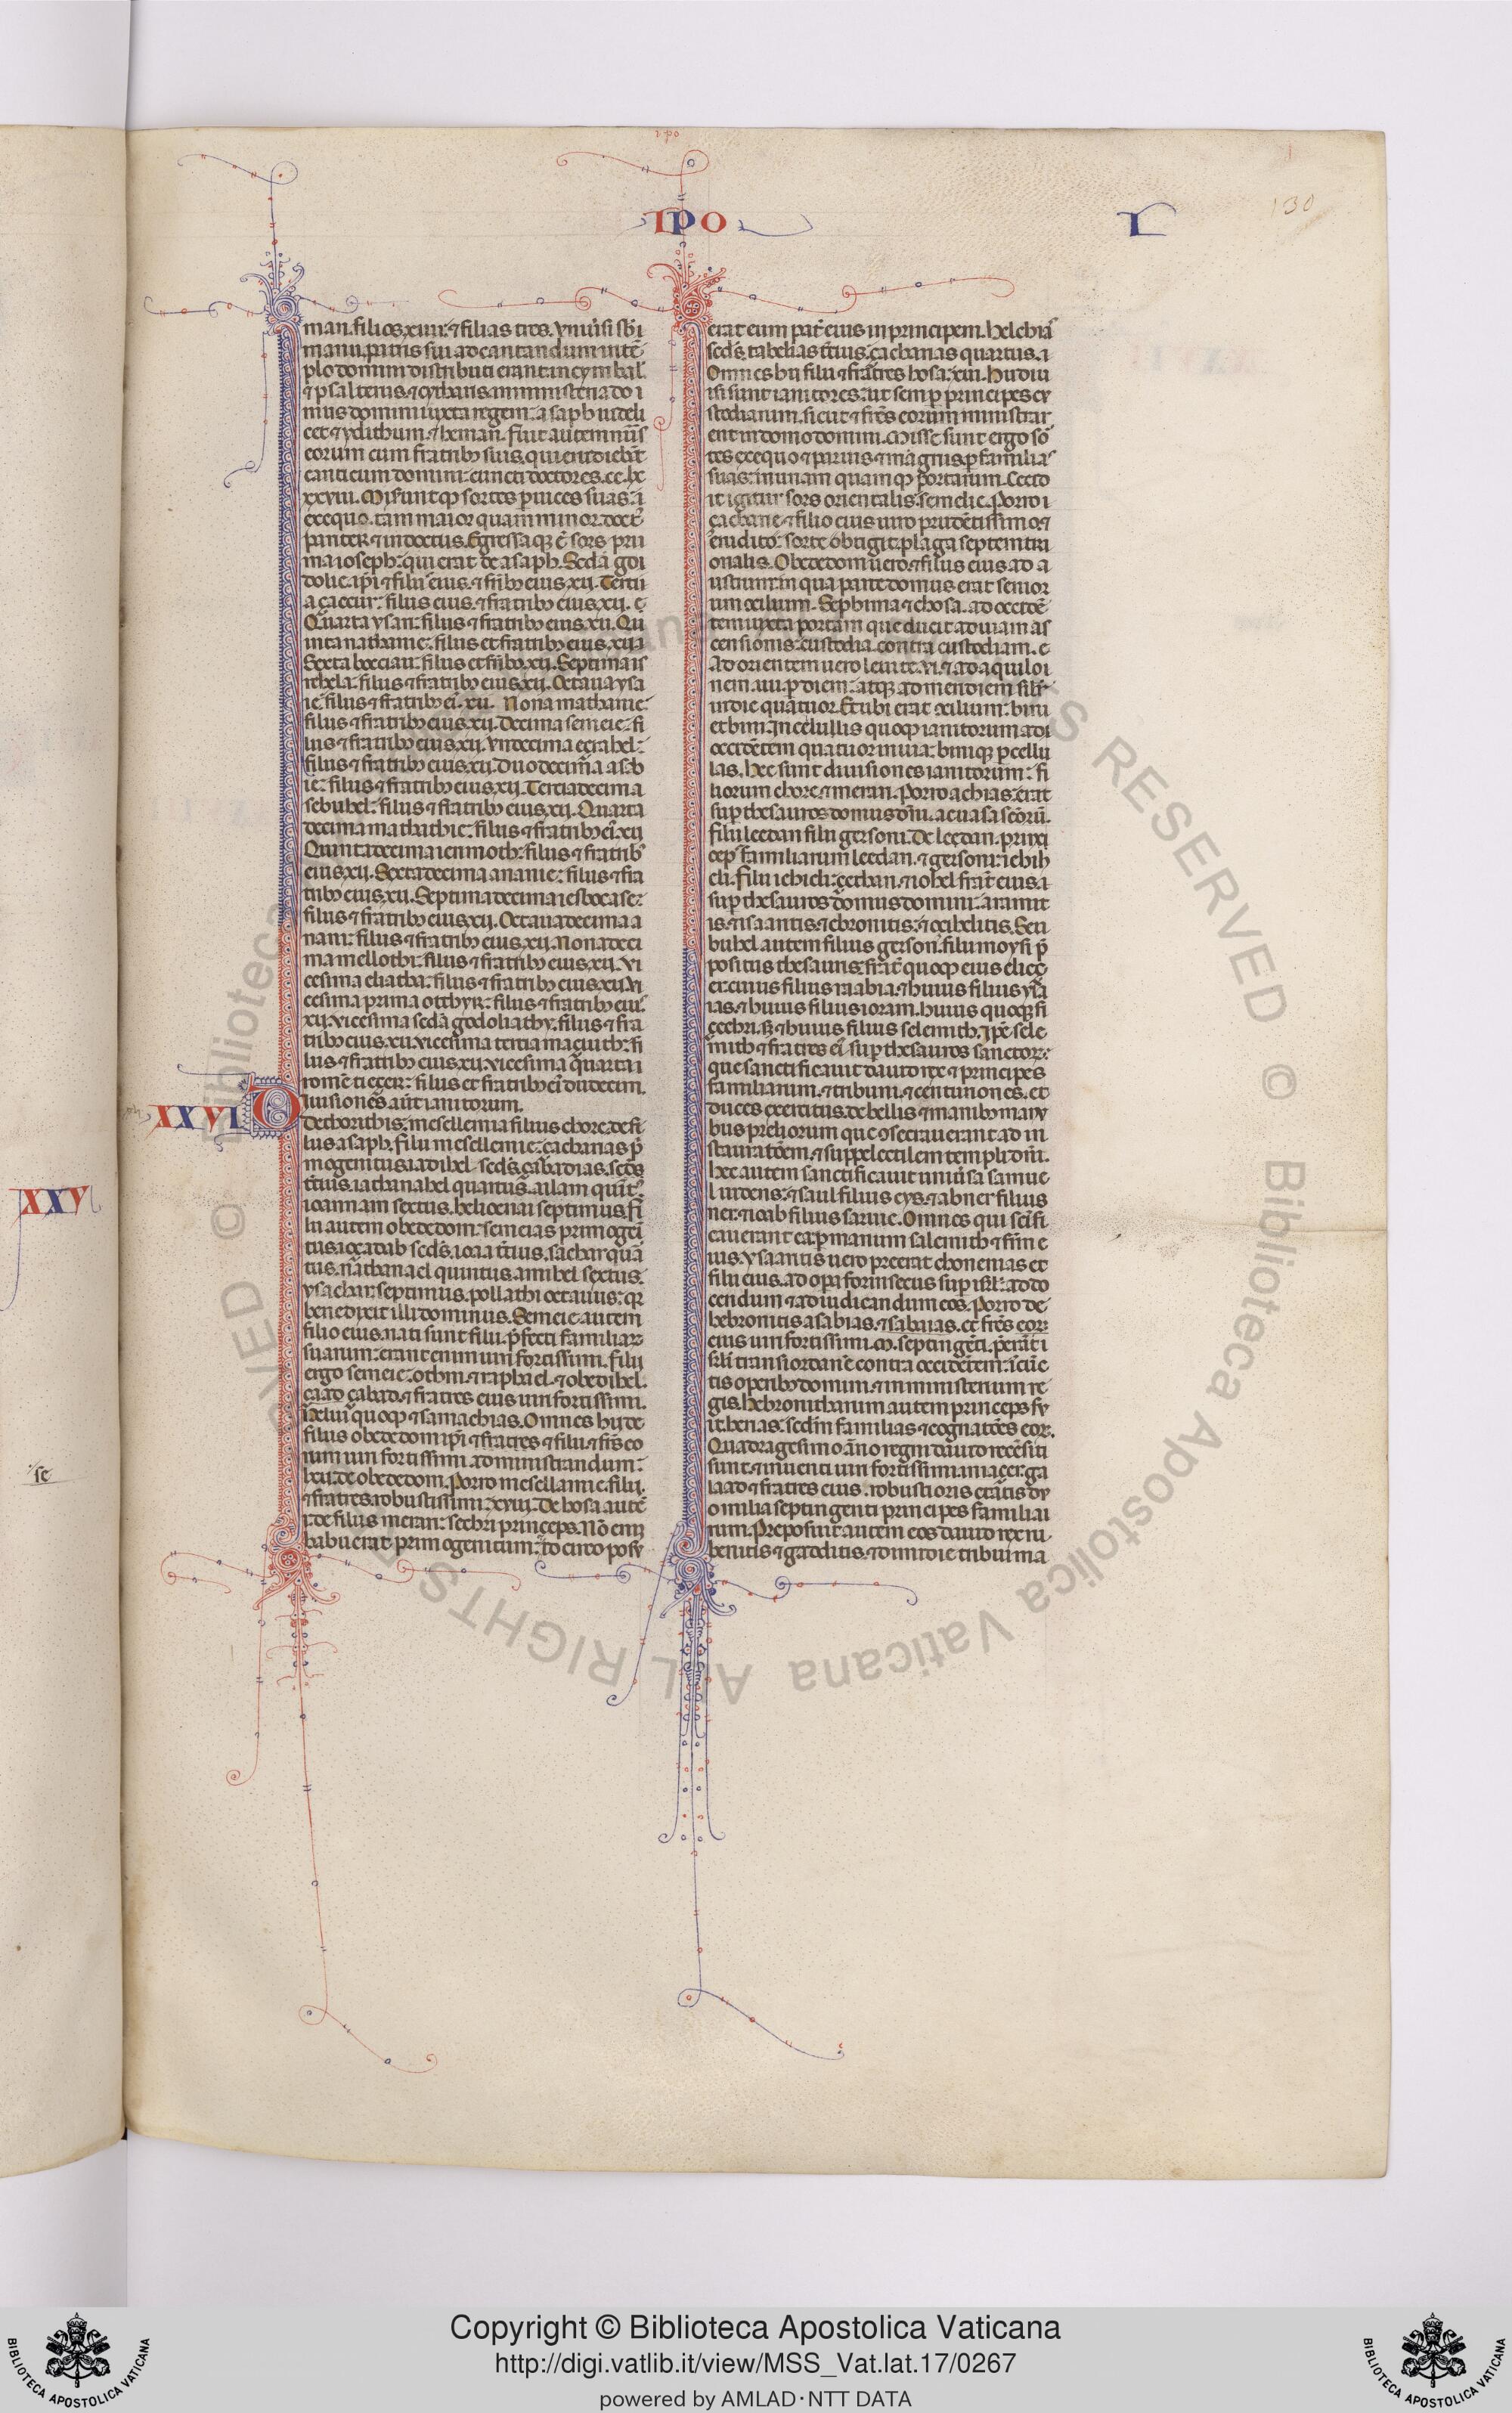 ipo
IPO
L
130
man. filios. xiiii. ⁊ filias tres. Vniũsi sb̾ i
manu patris sui ad cantandum in tẽ
plo domini distributi erant: in cymbal̾
⁊ psalteriis. ⁊ cytharis. in ministeria do i
mus domini iuxta regem: asaph uideli
cet ⁊ ydithum. ⁊ heman. Fuit autem nũs
eorum cum fratribꝫ suis. qui erudiebãt
canticum domini: cuncti doctores. cc. lx
xxviii. Miseruntqꝫ sortes per uices suas: i
ex equo. tam maior quam minor. doctꝰ
pariter ⁊ indoctus. Egressaqꝫ ẽ sors prii
ma ioseph: qui erat de asaph. Scđa goi
dolie. ip̃i ⁊ filiis eius. ⁊ fr̃ibꝫ eius. xii. Tertii
a çaccur: filiis eius. ⁊ fratribꝫ eius. xii. ç
Quarta ysari: filiis ⁊ fratribꝫ eius. xii. Qui
inta nathanie: filiis et fratribꝫ eius. xii a
Sexta bocciau: filiis et fr̃ibꝫ. xii. Septima is
rehela: filiis ⁊ fratribꝫ eius. xii. Octaua ysa
ie: filiis ⁊ fratribꝫ eĩ. xii. Nona mathanie:
filiis ⁊ fratribꝫ eius. xii. Decima semeie: fi
liis ⁊ fratribꝫ eius. xii. Vndecima eçrahel:
filiis ⁊ fratribꝫ eius. xii. Duodecima asab
ie: filiis ⁊ fratribꝫ eius. xii. Terciadecima
sebuhel: filiis ⁊ fratribꝫ eius. xii. Quarta
decima mathathie: filiis ⁊ fratribꝫ eĩ. xii
Quintadecima ierimoth: filiis ⁊ fratribꝫ
eius. xii. Sextadecima ananie: filiis ⁊ fra
tribꝫ eius. xii. Septimadecima iesbocase:
filiis ⁊ fratribꝫ eius. xii. Octauadecima a
nani: filiis ⁊ fratribꝫ eius. xii. Nonadeci
ma mellothi: filiis ⁊ fratribꝫ eius. xii. Vi
cesima eliatha: filiis ⁊ fratribꝫ eius. xii. Vi
cesima prima othyr: filiis ⁊ fratribꝫ eiuꝰ
xii. Vicesima scđa godoliathy: filiis ⁊ fra
tribꝫ eius. xii. Vicesima tertia maçiuth: fi
liis ⁊ fratribꝫ eius. xii. Vicesima q̃rta i
romẽtieçer: filiis et fratribꝫ eĩ duodecim.
XXVI Diuisiones aũt ianitorum.
De chorithis: mesellemia filius chore. de fi
liis asaph. Filii mesellemie: çacharias p̃
mogenitus. iadihel scđs. çabadias. scđs
t̃tius. iathanahel quartus. ailam quĩtꝰ
ioannam sextus. helioenai septimus. Fi
lii autem obededom: semeias. primogeni
tus. ioçadab scđs. ioaa t̃tius. sachar quar̃
tus. nathanael quintus. amihel sextus.
ysachar: septimus. pollathi octauus: qꝛ
benedixit illi dominus. Semeie autem
filio eius. nati sunt filii. p̃fecti familiarꝫ
suarum: erant enim uiri fortissimi. Filii
ergo semeie: othni. ⁊ raphael. ⁊ obedihel.
çaad. çabad. ⁊ fratres eius uiri fortissimi.
helui quoqꝫ ⁊ samachias. Omnes hii de
filiis obededom ip̃i ⁊ fratres ⁊ filii. ⁊ fr̃s eo
rum uiri fortissimi ad ministrandum:
lxii. de obededom. Porro mesellamie. filii.
⁊ fratres. robustissimi: xviii. De hosa autẽ
i. de filiis merari: sechri princeps. Nõ enĩ
habuerat primogenitum: ⁊ id circo posy
erat eum pat̃ eius in principem. helchiã
scđs. tabelias t̃tius. çacharias quartus. i
Omnes hii filii ⁊ fratres hosa: xiii. Hii diu
isi sunt ianitores: ut semp̃ principes cy
stodiarum. sicut ⁊ fr̃es eorum ministrar
ent in domo domini. Misse sunt ergo sor̃
tes ex equo ⁊ paruis ⁊ magnis. p̃ familiaˢ
suas: in unam quamqꝫ portarum. Cecid
it igitur sors orientalis. semelie. Porro i
çacharie. ⁊ filio eius uiro prudẽtissimo. ⁊
erudito: sorte obtigit. plaga septemtri
onalis. Obededom uero. ⁊ filiis eius. ad a
ustrum: in qua parte domus erat senior
um cõsilium. Sephima ⁊ chosa. ad occidẽ
tem iuxta portam que ducit ad uiam as
censionis: custodia. contra custodiam. e
Ad orientem uero leuite. vi. ⁊ ad aquiloi
nem. iiii. p̃ diem: atqꝫ ad meridiem sili˜
in die quatuor. Et ubi erat cõsilium: bini
et bini. In cellulis quoqꝫ ianitorum ad
occidẽtem quatuor in uia: biniqꝫ p̃ cellu
las. Hec sunt diuisiones ianitorum: fi
liorum chore. ⁊ merari. Porro achias: erat
sup̃ thesauros domus dñi. ac uasa scõrũ.
Filii leedan filii gersoni. De leedan. princi
ceps familiarum leedan. ⁊ gersoni: iehih
eli. Filii iehieli: çethan. ⁊ iohel frat̃ eius. i
sup̃ thesauros domus domini: aramit
is. ⁊ isaaritis. ⁊ ebronitis. ⁊ oçihelitis. Seu
buhel autem filius gerson. filii moysi p̃
positus thesauris: frat̃ quoqꝫ eius elieçe
er. cuius filius raabia. ⁊ huius filius ysa
ias. ⁊ huius filius ioram. huius quoqꝫ fi
çechri. sꝫ ⁊ huius filius selemith. Ip̃e sele
mith ⁊ fratres eĩ sup̃ thesauros sanctorꝫ:
que sanctificauit dauid rex ⁊ principes
familiarum. ⁊ tribuni. ⁊ centuriones. et
duces exercitus. de bellis ⁊ manibꝫ many
bus preliorum que ɔsecrauerant ad in
stauratõem. ⁊ suppellectilem templi dñi.
Hec autem sanctificauit uniũsa samue
l uidens: ⁊ saul filius cys. ⁊ abner filius
ner. ⁊ ioab filius saruie. Omnes qui scĩfi
cauerant ea: p̃ manum salemith ⁊ fr̃m e
ius. Ysaaritis uero preerat chonenias et
filii eius. ad opa forinsecus sup̃ isrl̃: ad do
cendum ⁊ ad iudicandum eos. Porro de
hebronitis asabias. ⁊ sabaias. et fr̃es eor:
eius uiri fortissimi. M. septingẽti. p̃erãt i
srl̃i trans iordanẽ contra occidẽtem: i cũc
tis operibꝫ domini. ⁊ in ministerium re
gis. Hebronitharum autem princeps fy
it herias: scđm familias ⁊ cognatões eorꝫ.
Quadragesimo ãno regni dauid recẽsiti
sunt. ⁊ inuenti uiri fortissimi in iaçer: ga
laad ⁊ fratres eius. robustioris etãtis dy
o milia septingenti principes familiai
rum. Preposuit autem eos dauid rex ru
benitis ⁊ gadditis. ⁊ dimidie tribui ma
XXV
se
Copyright © Biblioteca Apostolica Vaticana
http://digi.vatlib.it/view/MSS_Vat.lat.17/0267
powered by AMLAD·NTT DATA
BIBLIOTECA APOSTOLICA VATICANA
BIBLIOTECA APOSTOLICA VATICANA